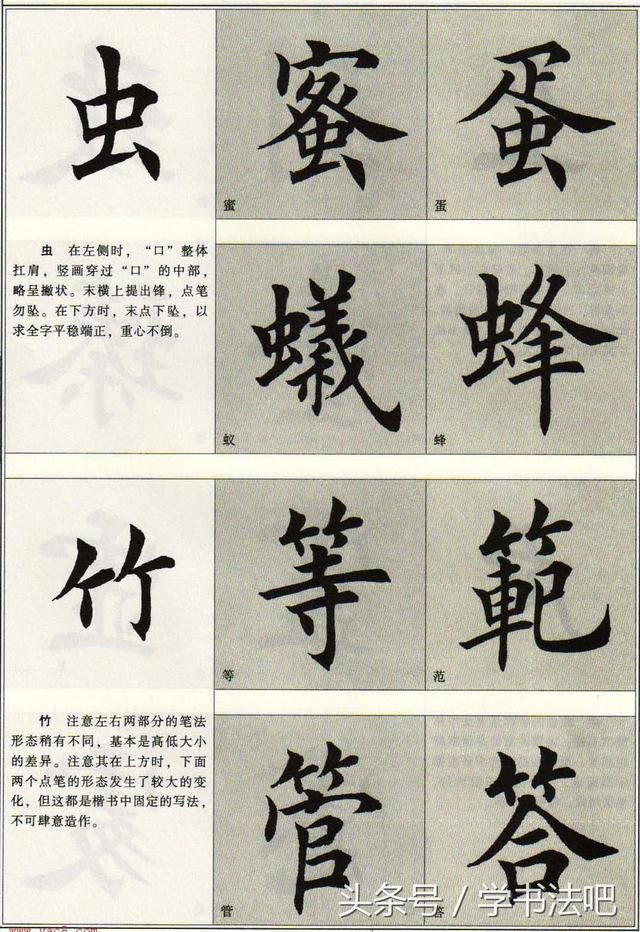 虫
蜜
蛋
蜜
蛋
虫 在左侧时，“口”整体
扛肩，竖画穿过“口”的中部，
略呈撇状。末横上提出锋，点笔
勿坠。在下方时，末点下坠，以
求全字平稳端正，重心不倒。
蟻
蜂
蚁
蜂
竹
等
範
等
范
竹 注意左右两部分的笔法
形态稍有不同，基本是高低大小
的差异。注意其在上方时，下面
两个点笔的形态发生了较大的变
化，但这都是楷书中固定的写法，
不可肆意造作。
管
答
管
答
头条号／学书法吧